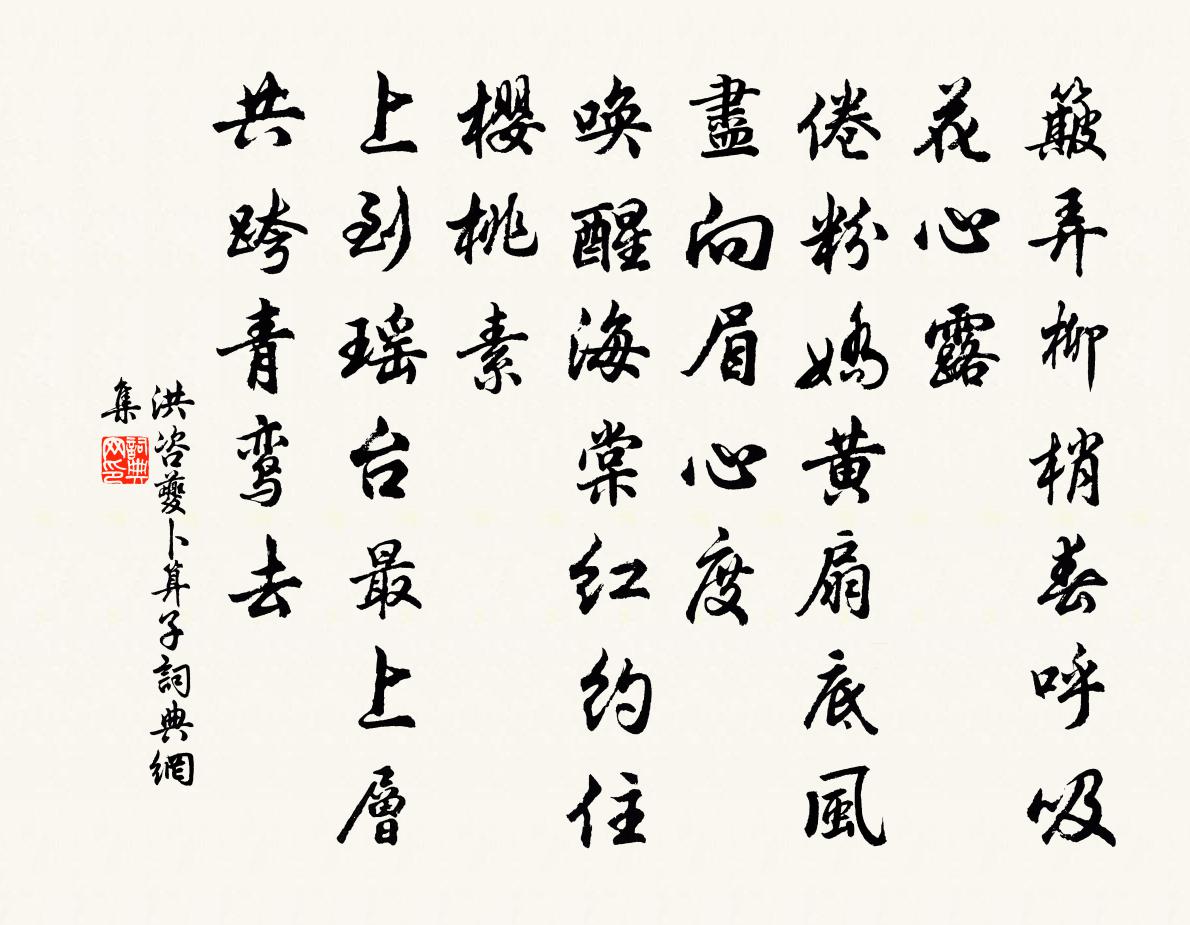 簸弄柳梢春呼吸
花心露
倦粉嬌黄扇底風
盡向眉心度
唤醒海棠红約住
櫻桃素
上到瑶台最上層
共跨青鸾去
洪咨夔卜算子詞典網
集
詞典
网印